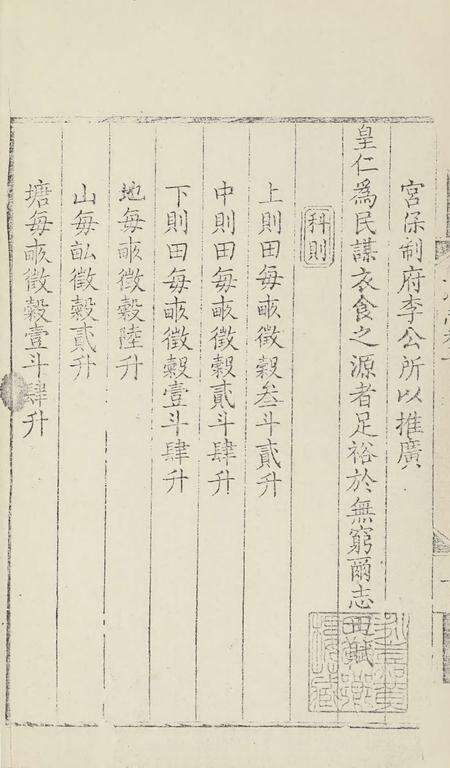 宮保制府李公所以推廣
皇仁爲民謀衣食之源者足裕於無窮爾志田賦
科則
上則田每畝徵穀叁斗貳升
中則田每畝徵穀貳斗肆升
下則田每畝徵穀壹斗肆升
地每畝徵穀陸升
山每畝徵穀貳升
塘每畝徵穀壹斗肆升